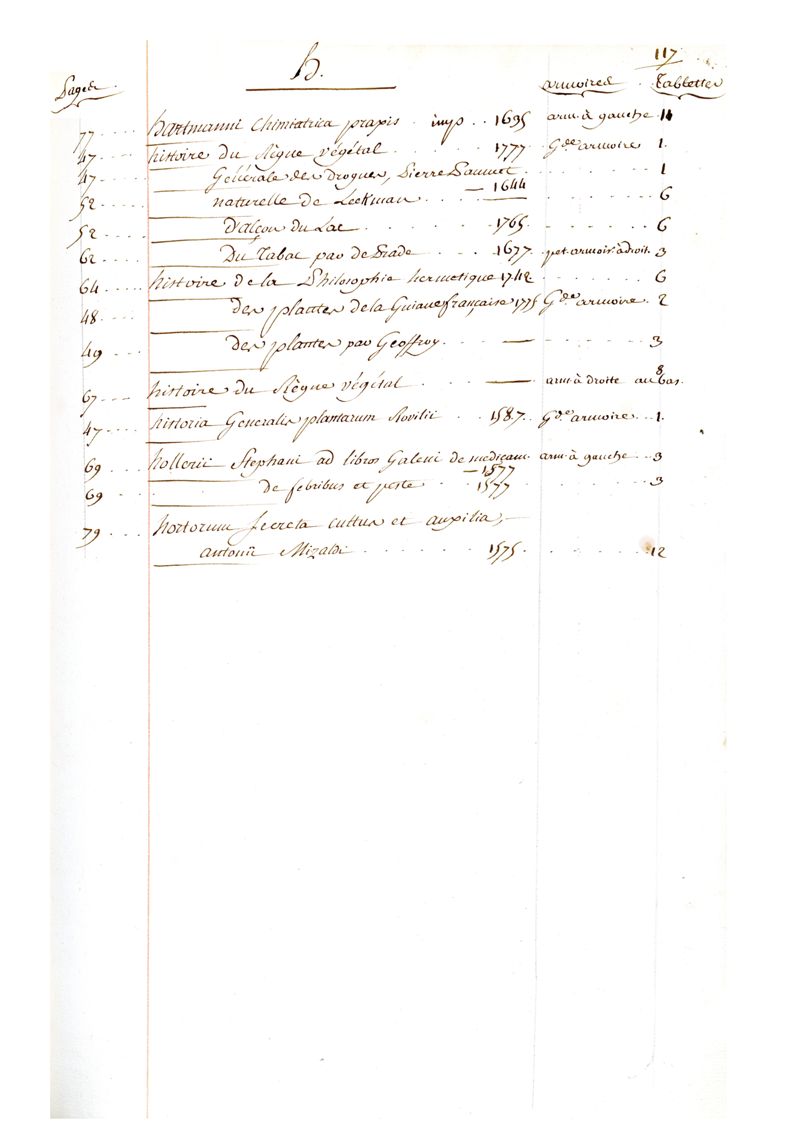 117
h.
Pages armoires Tablettes
77 hartmanni Chimiatrica praxis imp 1635 arm. à gauche 11
47 histoire du Règne végétal 1777 Gde armoire 1.
47 Générale des drogues, Pierre Pommet 1
52 naturelle de Leekman — 1644 6
52 d'alçon du Lac 1765 6
62 Du Tabac par de Prade 1677 pet. armoir. à droit. 3
64 histoire de la Philosophie hermetique 1742 6
48 des plantes de la Guiane française 1775 Gde armoire 2
49 des plantes par Geoffroy — 3
67 histoire du Règne végétal — arm. à droite au bas. 8
47 historia Generalis plantarum Rovilii 1587 Gde armoire 1.
69 hollerii Stephani ad libros Galeni de medicam. — 1577 arm. à gauche 3
69 de febribus et peste 1577 3
79 hortorum secreta cultus et auxilia,
antonii Mizaldi 1575 12